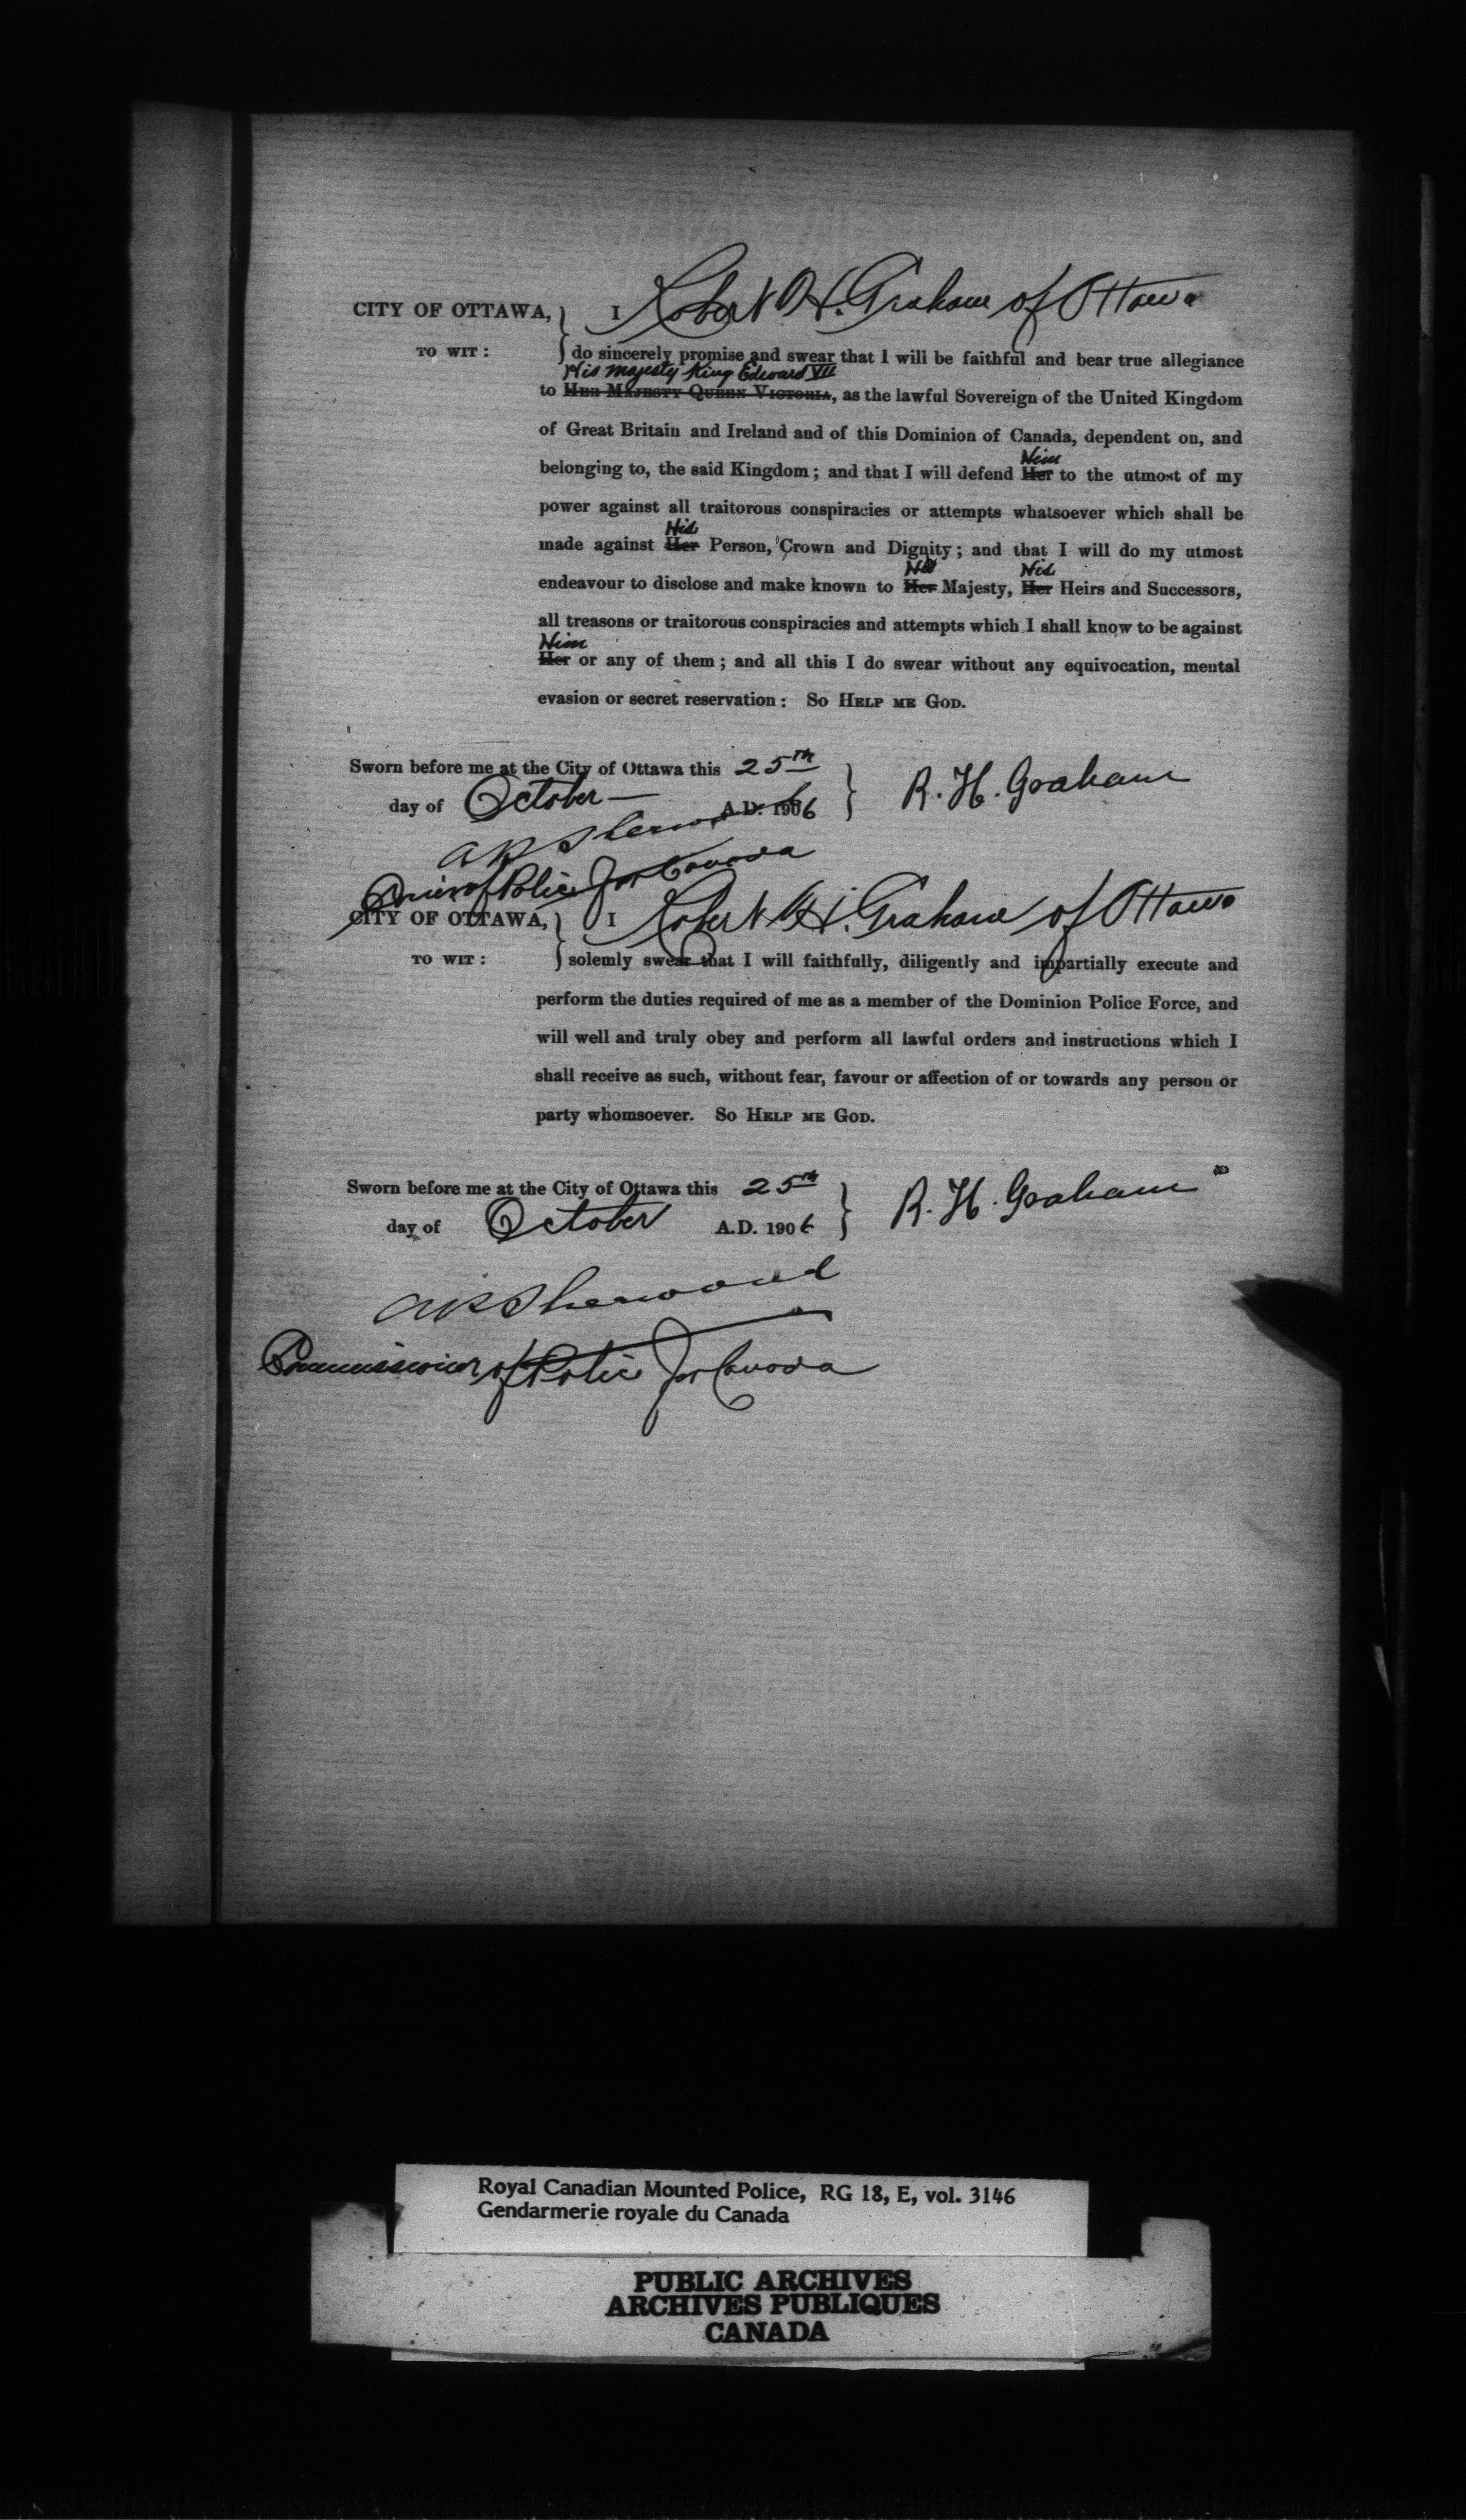 CITY OF OTTAWA, I Robert H. Graham of Ottawa
TO WIT: do sincerely promise and swear that I will be faithful and bear true allegiance
His Majesty King Edward VII
to Her Majesty Queen Victoria, as the lawful Sovereign of the United Kingdom
of Great Britain and Ireland and of this Dominion of Canada, dependent on, and
Him
belonging to, the said Kingdom; and that I will defend Her to the utmost of my
power against all traitorous conspiracies or attempts whatsoever which shall be
His
made against Her Person, Crown and Dignity; and that I will do my utmost
His His
endeavour to disclose and make known to Her Majesty, Her Heirs and Successors,
all treasons or traitorous conspiracies and attempts which I shall know to be against
Him
Her or any of them; and all this I do swear without any equivocation, mental
evasion or secret reservation: So Help me God.
Sworn before me at the City of Ottawa this 25th
day of October A.D. 1906 R. H. Graham
AP Sherwood
of Police for Canada
CITY OF OTTAWA, I Robert H. Graham of Ottawa
TO WIT: solemly swear that I will faithfully, diligently and impartially execute and
perform the duties required of me as a member of the Dominion Police Force, and
will well and truly obey and perform all lawful orders and instructions which I
shall receive as such, without fear, favour or affection of or towards any person or
party whomsoever. So Help me God.
Sworn before me at the City of Ottawa this 25th
day of October A.D. 1906 R. H. Graham
AP Sherwood
Commissioner of Police for Canada
Royal Canadian Mounted Police, RG 18, E, vol. 3146
Gendarmerie royale du Canada
PUBLIC ARCHIVES
ARCHIVES PUBLIQUES
CANADA